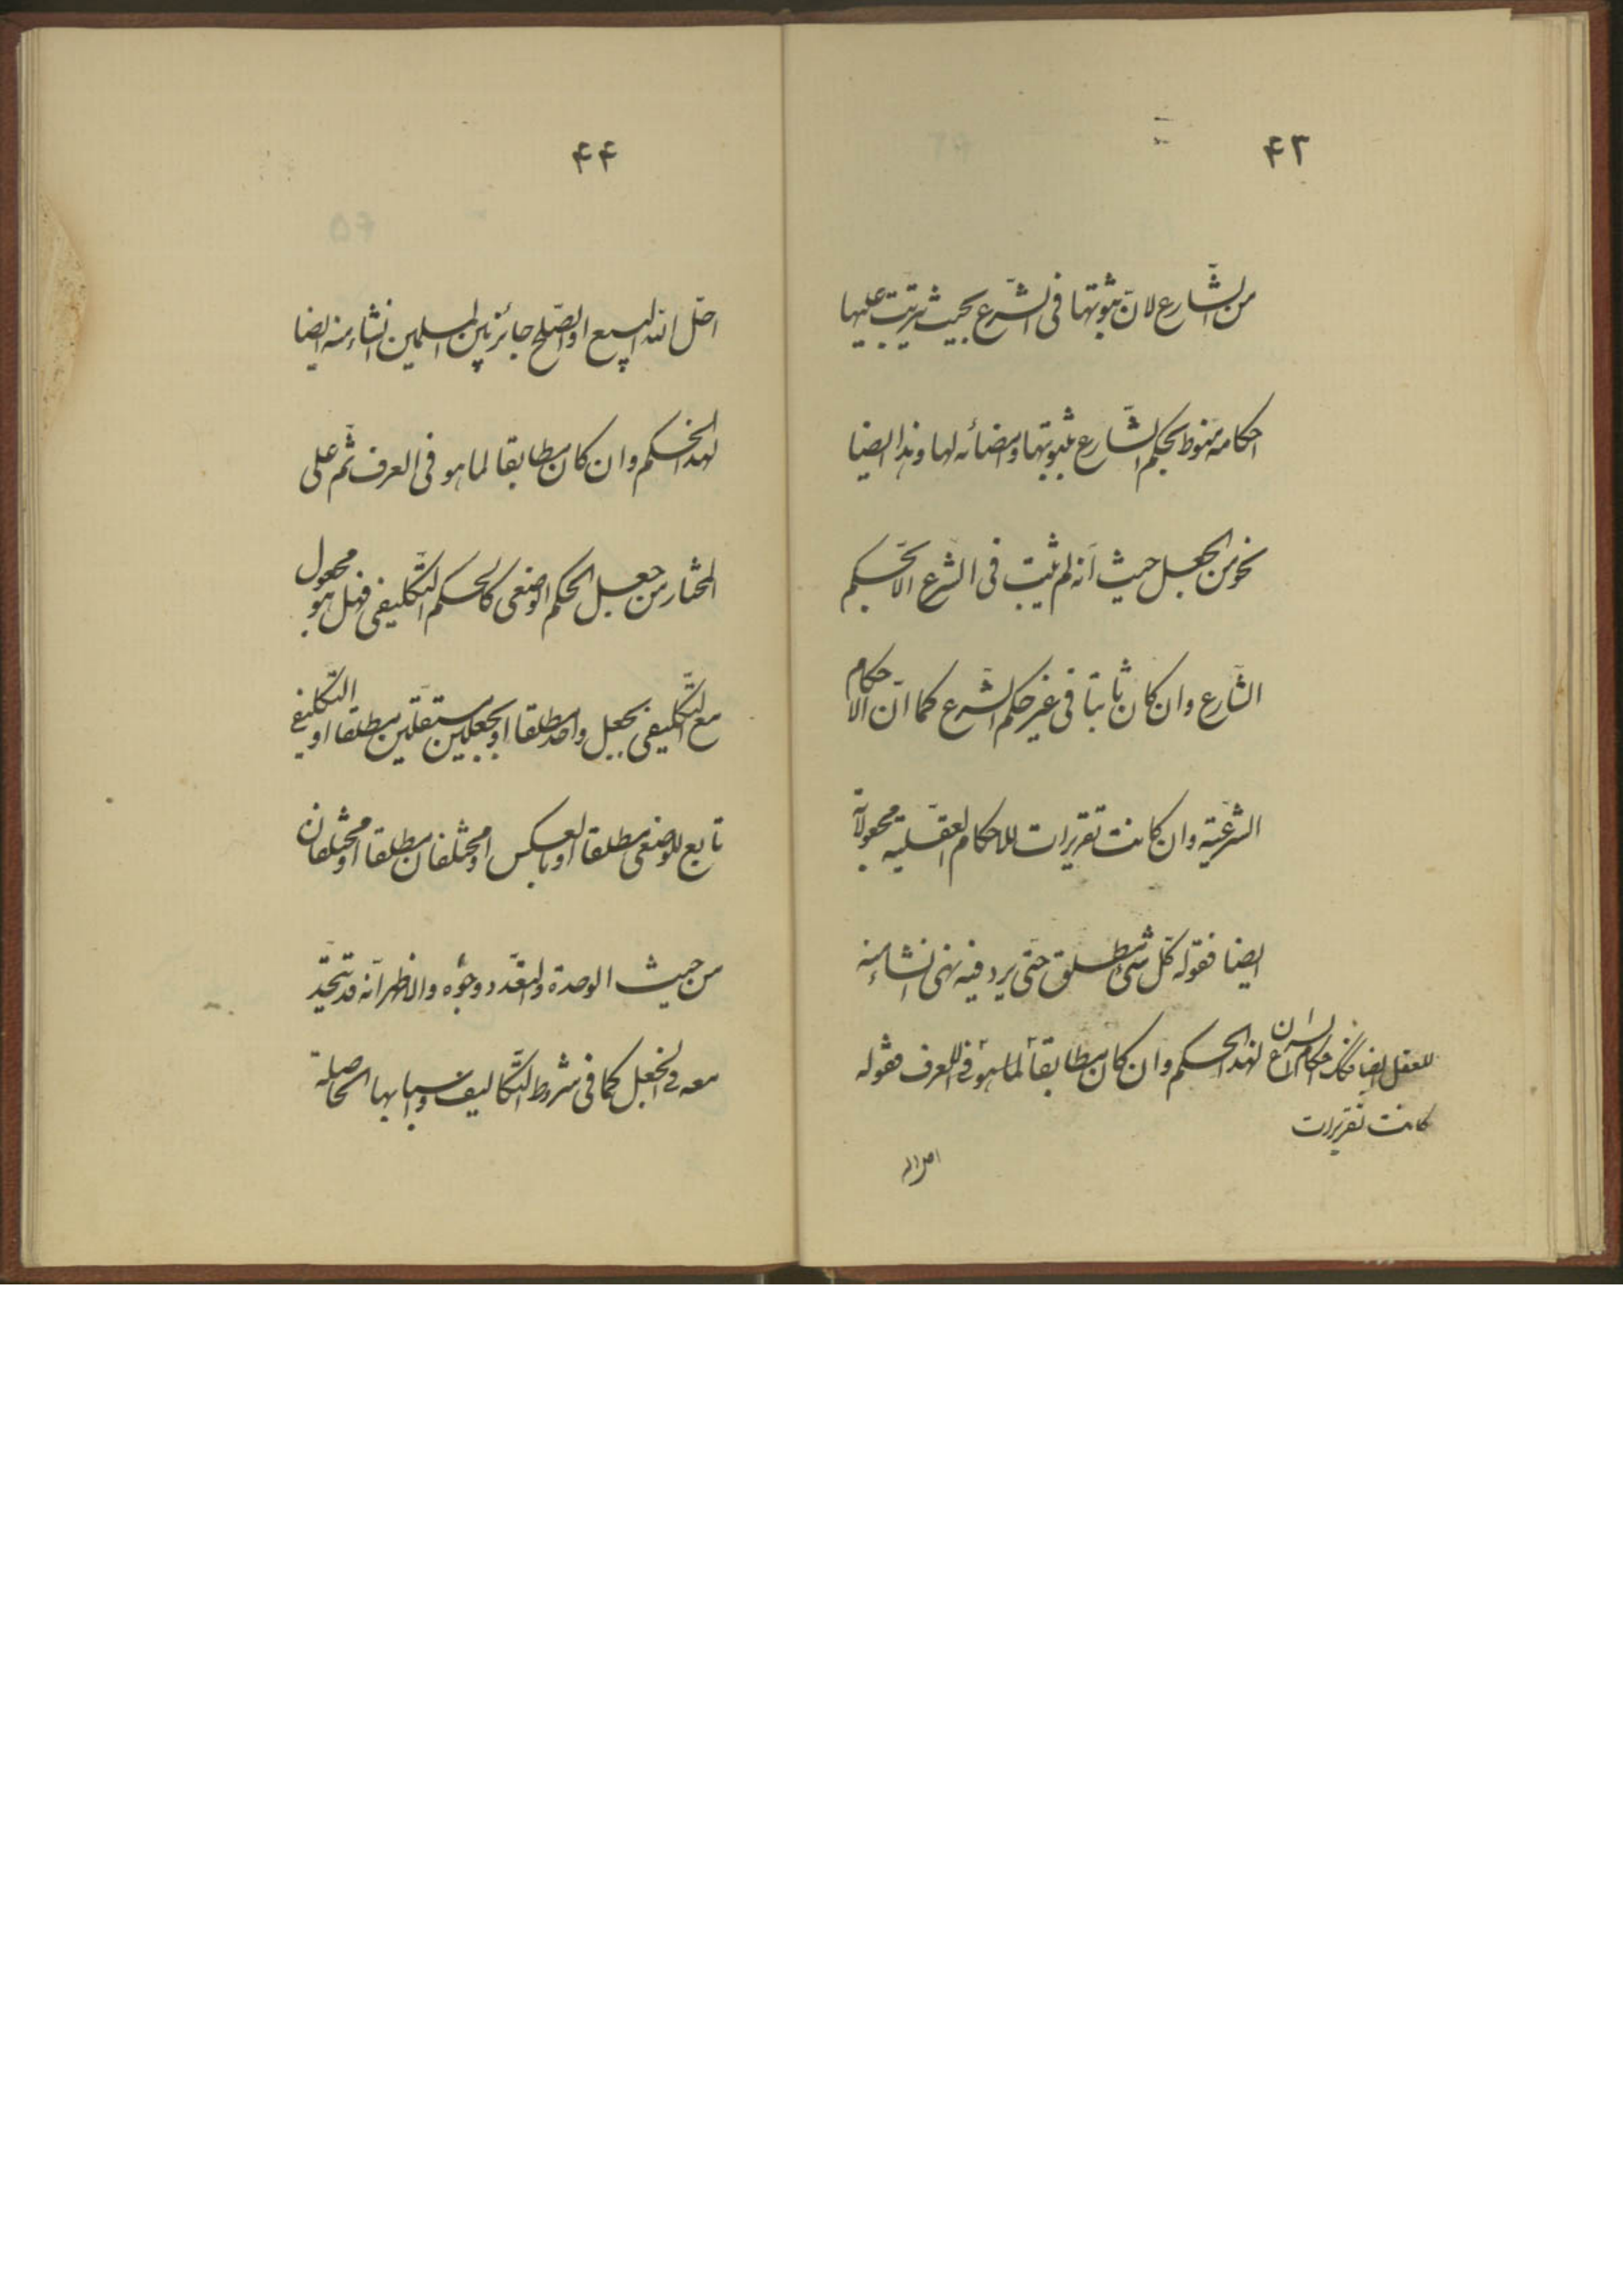 ۴۳
من الشّارع لانّ ثبوتها فى الشّرع بحيث يترتّب عليها
احكامه منوط بحكم الشّارع بثبوتها وامضائه لها وهذا ايضا
نحو من الجعل حيث انّه لم يثبت فى الشّرع الا بحكم
الشّارع وان كان ثابتا فى غير حكم الشّرع كما انّ الاحكام
الشرعيّة وان كانت تقريرات للاحكام العقليّة مجعولاتة
ايضا فقوله كلّ شئ مطلق حتى يرد فيه نهى انشاء منه
لهذا الحكم وان كان مطابقاً لما هو فى العرف فقوله
للعقل ايضا احكام
كانت تقريرات
احل اله
۴۴
احلّ الله البيع او الصّلح جائز بين المسلمين انشاء منه ايضا
لهذا الحكم وان كان مطابقا لما هو فى العرف ثمّ على
المختار من جعل الحكم الوضعى كالحكم التّكليفى فهل هو مجعول
مع التّكليفى بجعل واحد مطلقا او بجعلين مستقلّين مطلقا او التّكليفى
تابع للوضعى مطلقا او بالعكس او مختلفان مطلقا او مختلفان
من حيث الوحدة والتعّدد وجوه والاظهر انّه قد يتّحد
معه فى الجعل كما فى شروط التّكاليف واسبابها الحاصلة